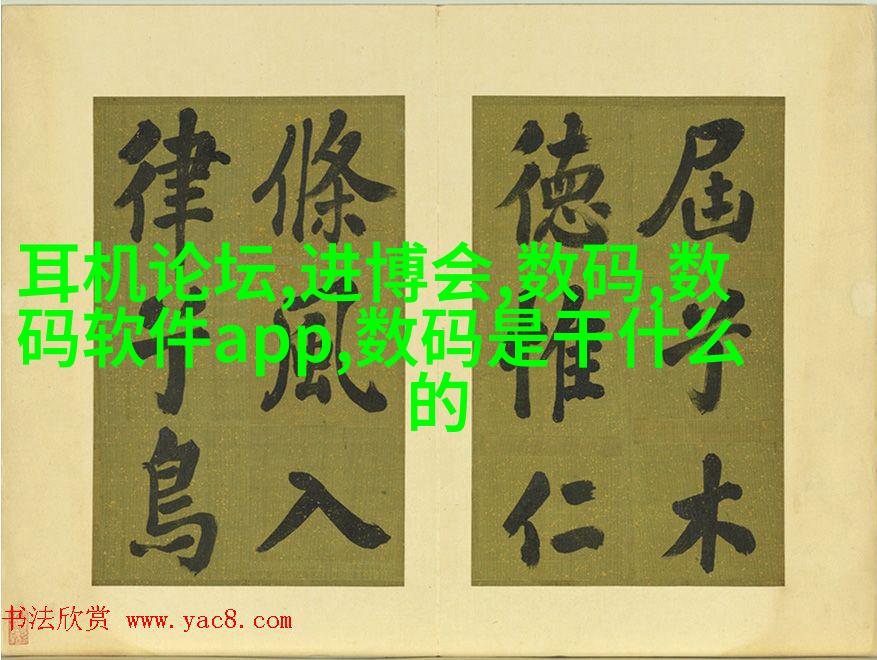 屆木
德惟仁
條風入
律于鳥
耳机论坛,进博会,数码,数
码软件app,数码是干什么
的
书法欣赏 www.yac8.com